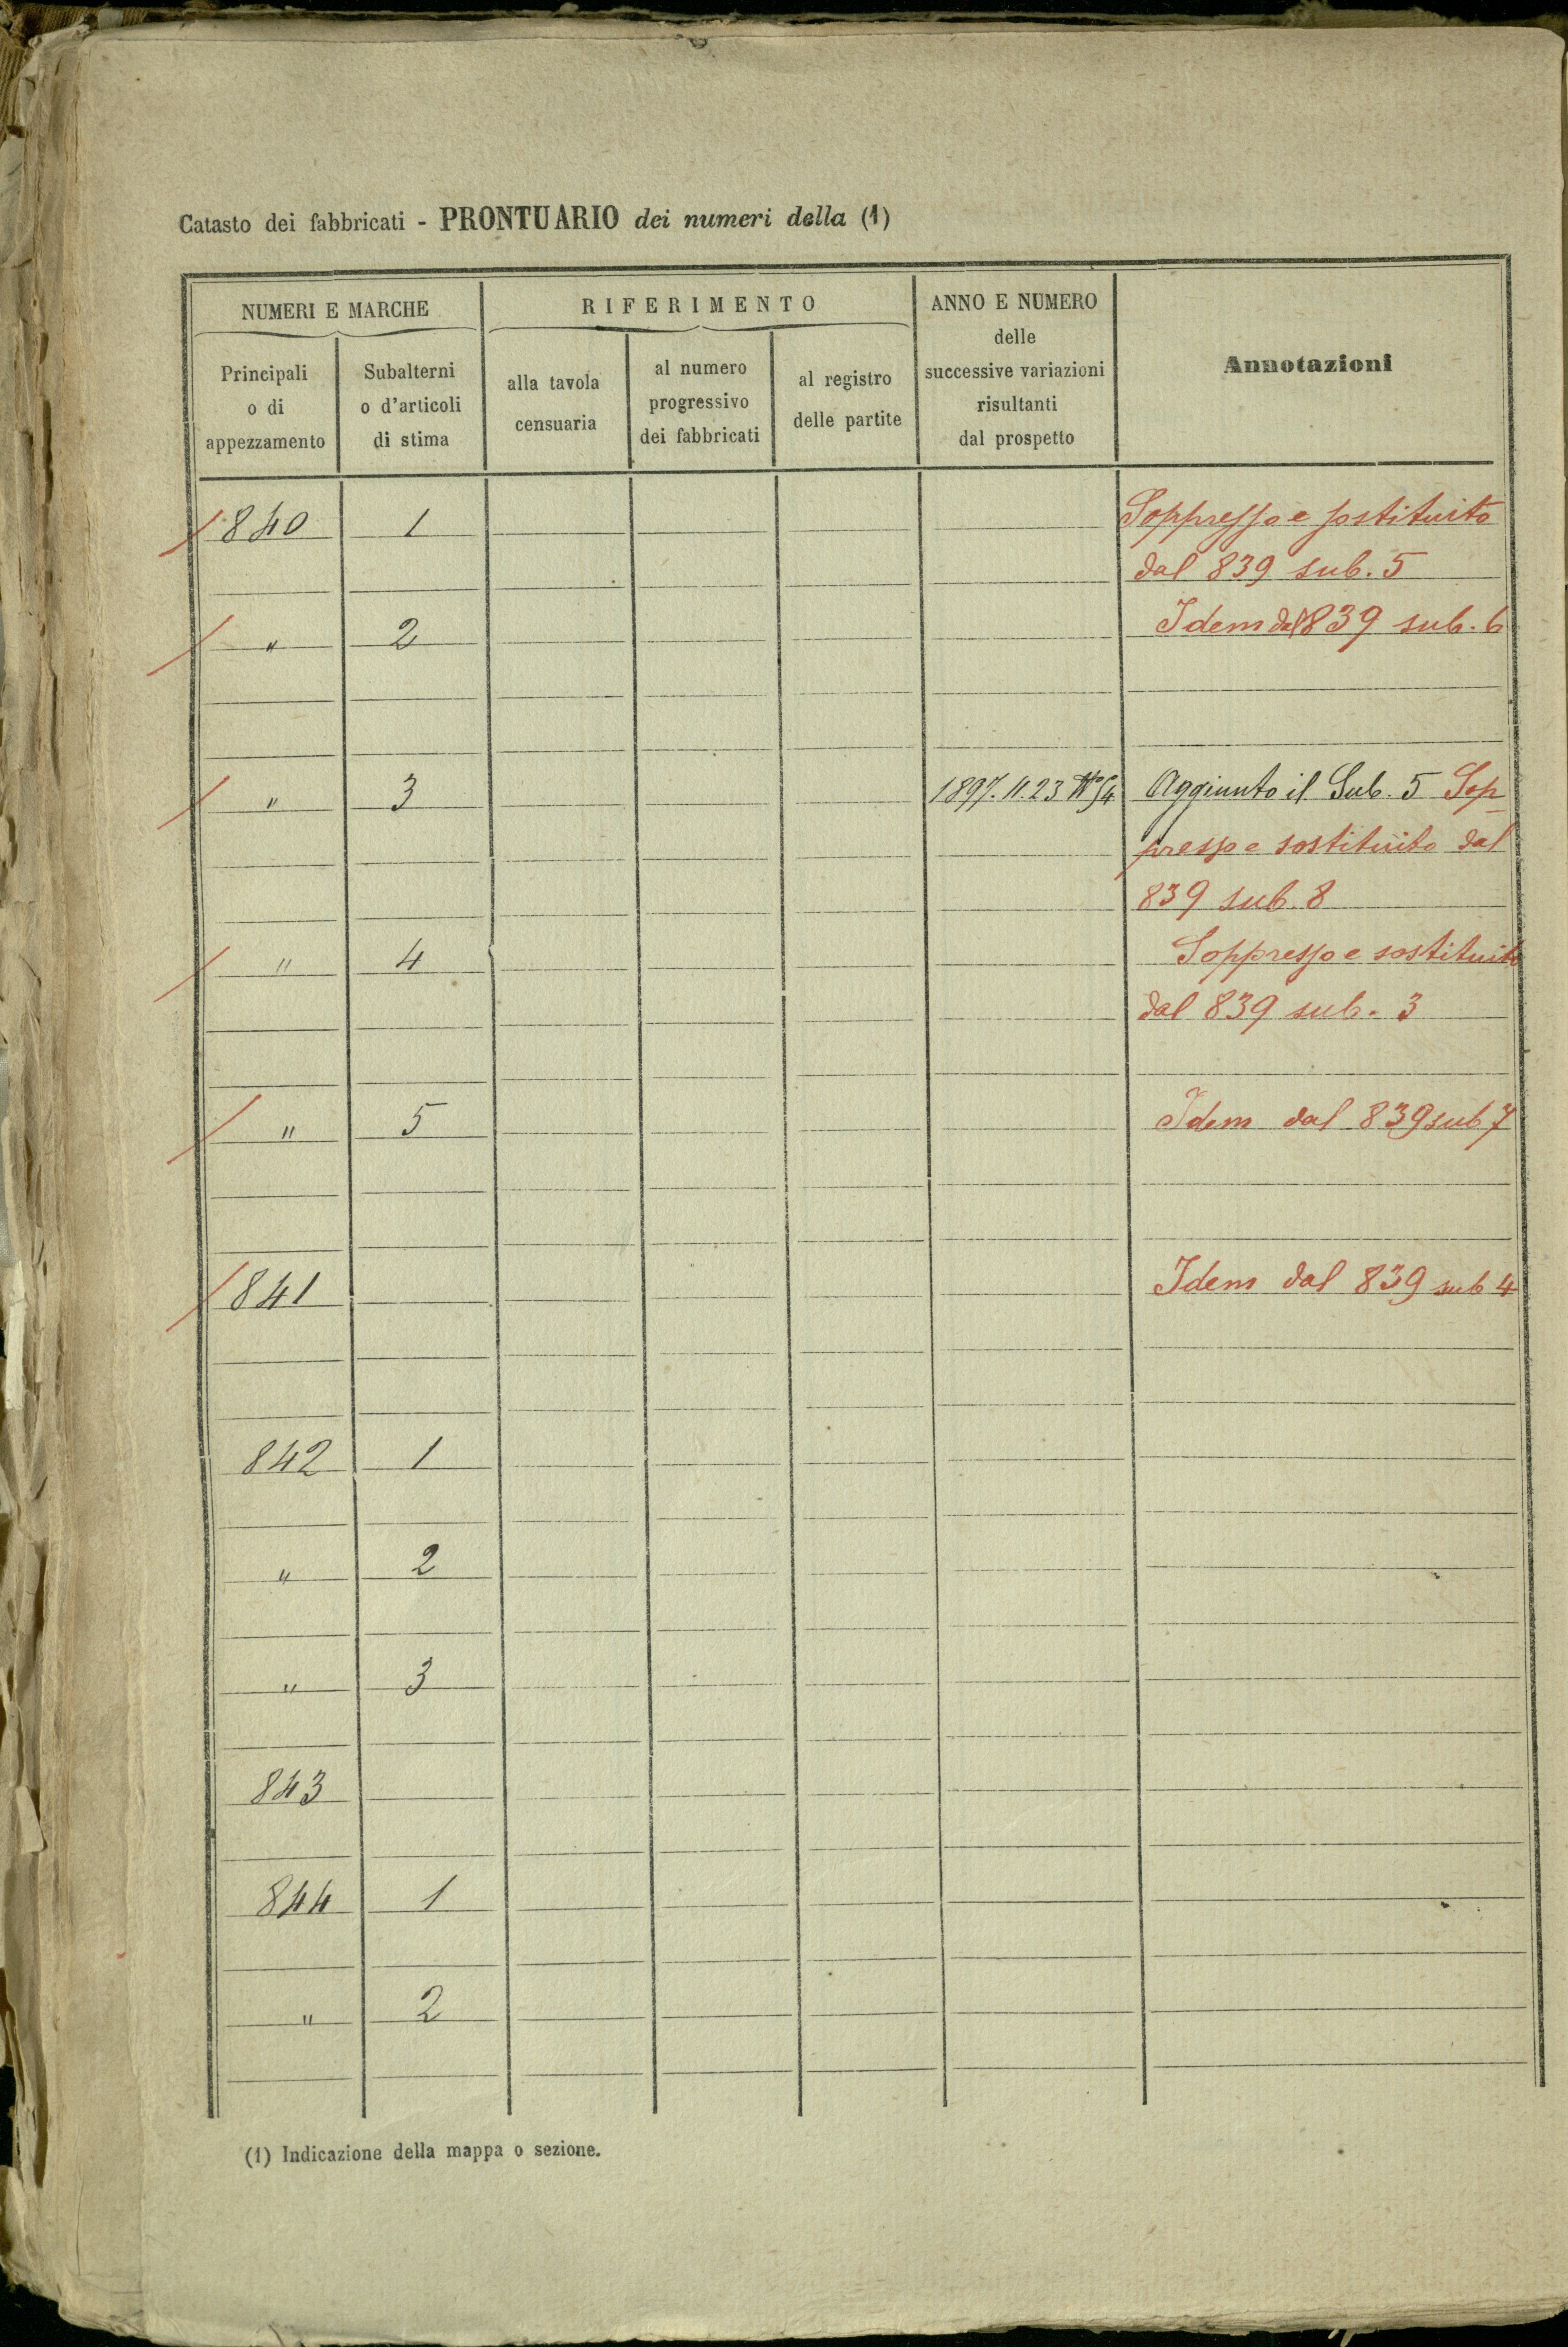 Catasto dei fabbricati - PRONTUARIO dei numeri della (1)
NUMERI E MARCHE
RIFERIMENTO
ANNO E NUMERO
delle
successive variazioni
risultanti
dal prospetto
Annotazioni
Principali
o di
appezzamento
Subalterni
o d'articoli
di stima
alla tavola
censuaria
al numero
progressivo
dei fabbricati
al registro
delle partite
840 1 Soppresso e sostituito
dal 839 sub. 5
" 2 Idem dal 839 sub. 6
" 3 1897. 11. 23 Aggiunto il Sub. 5 Sop
presso e sostituito dal
839 sub. 8
" 4 Soppresso e sostituito
dal 839 sub. 3
" 5 Idem dal 839 sub 7
841 Idem dal 839 sub 4
842 1
" 2
" 3
843
844 1
" 2
(1) Indicazione della mappa o sezione.